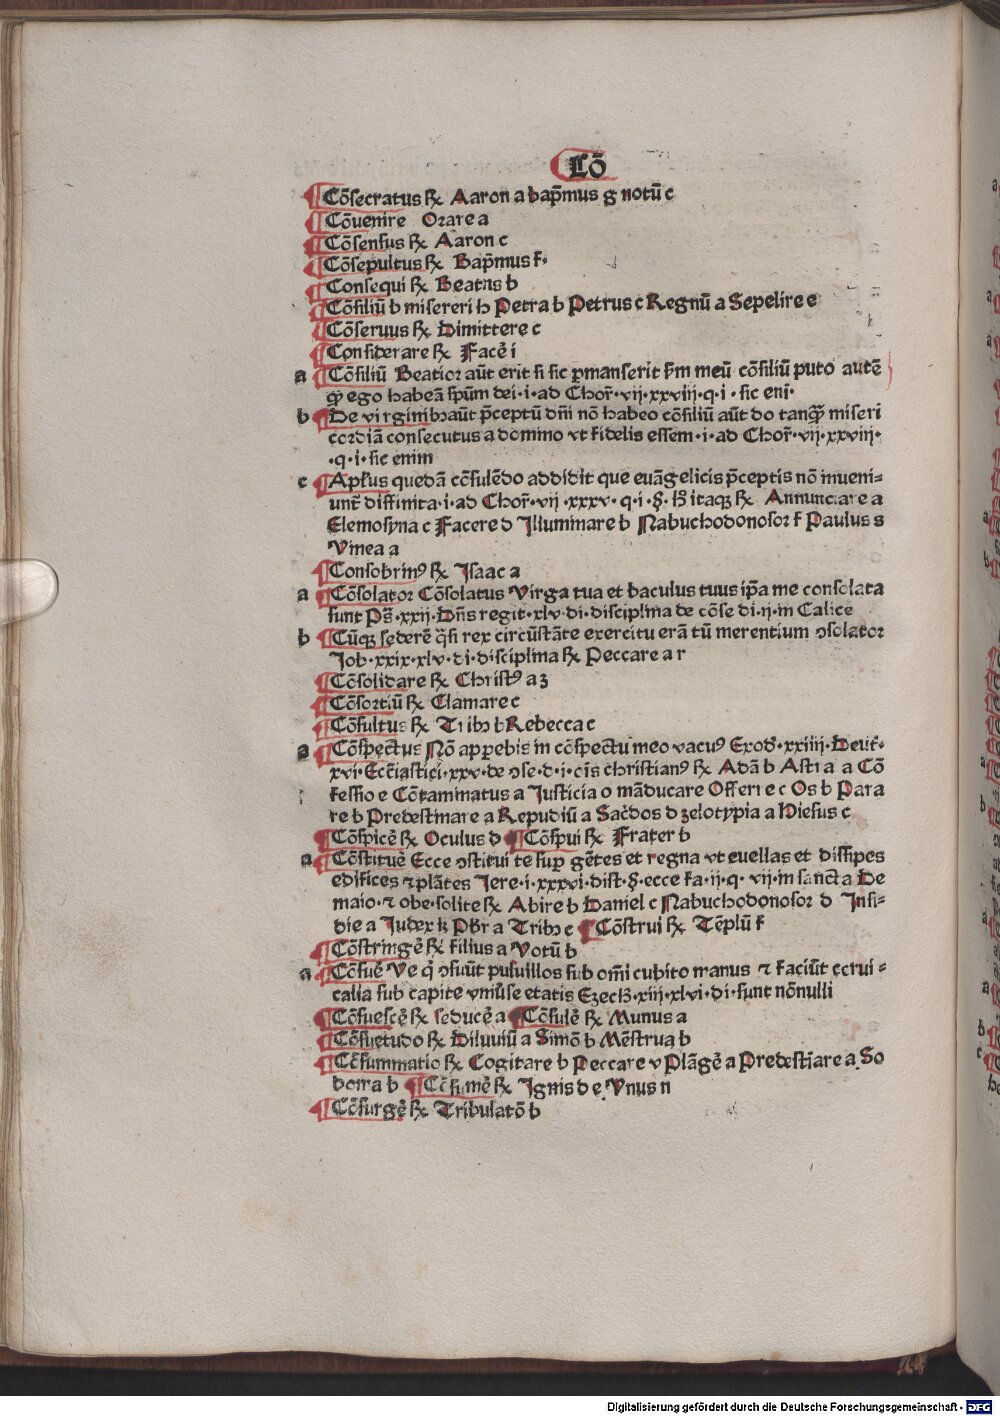 Cō
Cōsecratus ℞ Aaron a bap̄mus g notū c
Cōuenire Orare a
Cōsensus ℞ Aaron c
Cōsepultus ℞ Bap̄mus f·
Consequi ℞ Beatus b
Cōsiliū b misereri h Petra b Petrus c Regnū a Sepelire e
Cōseruus ℞ Dimittere c
Considerare ℞ Facē i
a Cōsiliū Beatior aūt erit si sic ꝑmanserit ẜm meū cōsiliū puto autē
ꝙ ego habeā spūm dei·i·ad Choꝝ·vij·xxviij·q·i·sic eni·
b De virginibꝫ aūt p̄ceptū dn̄i nō habeo cōsiliū aūt do tanꝙ̄ miseri
cordiā consecutus a domino vt fidelis essem·i·ad Choꝝ·vij·xxviij·
·q·i·sic enim
c Apl̄us quedā cōsulēdo addidit que euāgelicis p̄ceptis nō inueni=
unt̄ diffinita·i·ad Choꝝ·vij·xxxv·q·i·§·hꝫ itaqꝫ ℞ Annunciare a
Elemosyna c Facere d Illuminare b Nabuchodonosor f Paulus s
Vinea a
Consobrinꝰ ℞ Isaac a
a Cōsolator Cōsolatus Virga tua et baculus tuus ip̄a me consolata
sunt Ps̄·xxij·Dn̄s regit·xlv·di·disciplina de cōse di·ij·in Calice
b Cūqꝫ sederē q̄si rex circūstāte exercitu erā tū merentium ↄsolator
Job·xxix·xlv·di·disciplina ℞ Peccare a r
Cōsolidare ℞ Christꝰ a ʒ
Cōsortiū ℞ Clamare c
Cōsultus ℞ Tribꝫ b Rebecca c
a Cōspectus Nō apꝑebis in cōspectu meo vacuꝰ Exod̄·xxiiij·Deut̄·
xvi·Eccl̄iastici·xxv·de ↄse·d·i·om̄s christianꝰ ℞ Adā b Astra a Cō
fessio e Cōtaminatus a Justicia o māducare Offeri e c Os b Para
re b Predestinare a Repudiū a Sac̄dos d zelotypia a Hiesus c
Cōspicē ℞ Oculus d Cōspui ℞ Frater b
a Cōstituē Ecce ↄstitui te suꝑ gētes et regna vt euellas et dissipes
edifices ⁊ plātes Jere·i·xxxvi·dist·§·ecce fa·ij·q·vij·in sancta De
maio·⁊ obe·solite ℞ Abire b Daniel c Nabuchodonosor d Insi=
die a Judex k Pb̄r a Tribꝫ c Cōstrui ℞ Tēplū f
Cōstringē ℞ filius a Votū b
a Cōsuē Ve q̄ ↄsuūt puluillos sub om̄i cubito manus ⁊ faciūt cerui=
calia sub capite vniūse etatis Ezech̄·xiij·xlvi·di·sunt nōnulli
Cōsuescē ℞ seducē a Cōsulē ℞ Munus a
Cōsuetudo ℞ Diluuiū a Simō b Mēstrua b
Cōsummatio ℞ Cogitare b Peccare v Plāgē a Predestiare a So
doma b Cōsumē ℞ Ignis d e Vnus n
Cōsurgē ℞ Tribulatō b
Digitalisierung gefördert durch die Deutsche Forschungsgemeinschaft · DFG